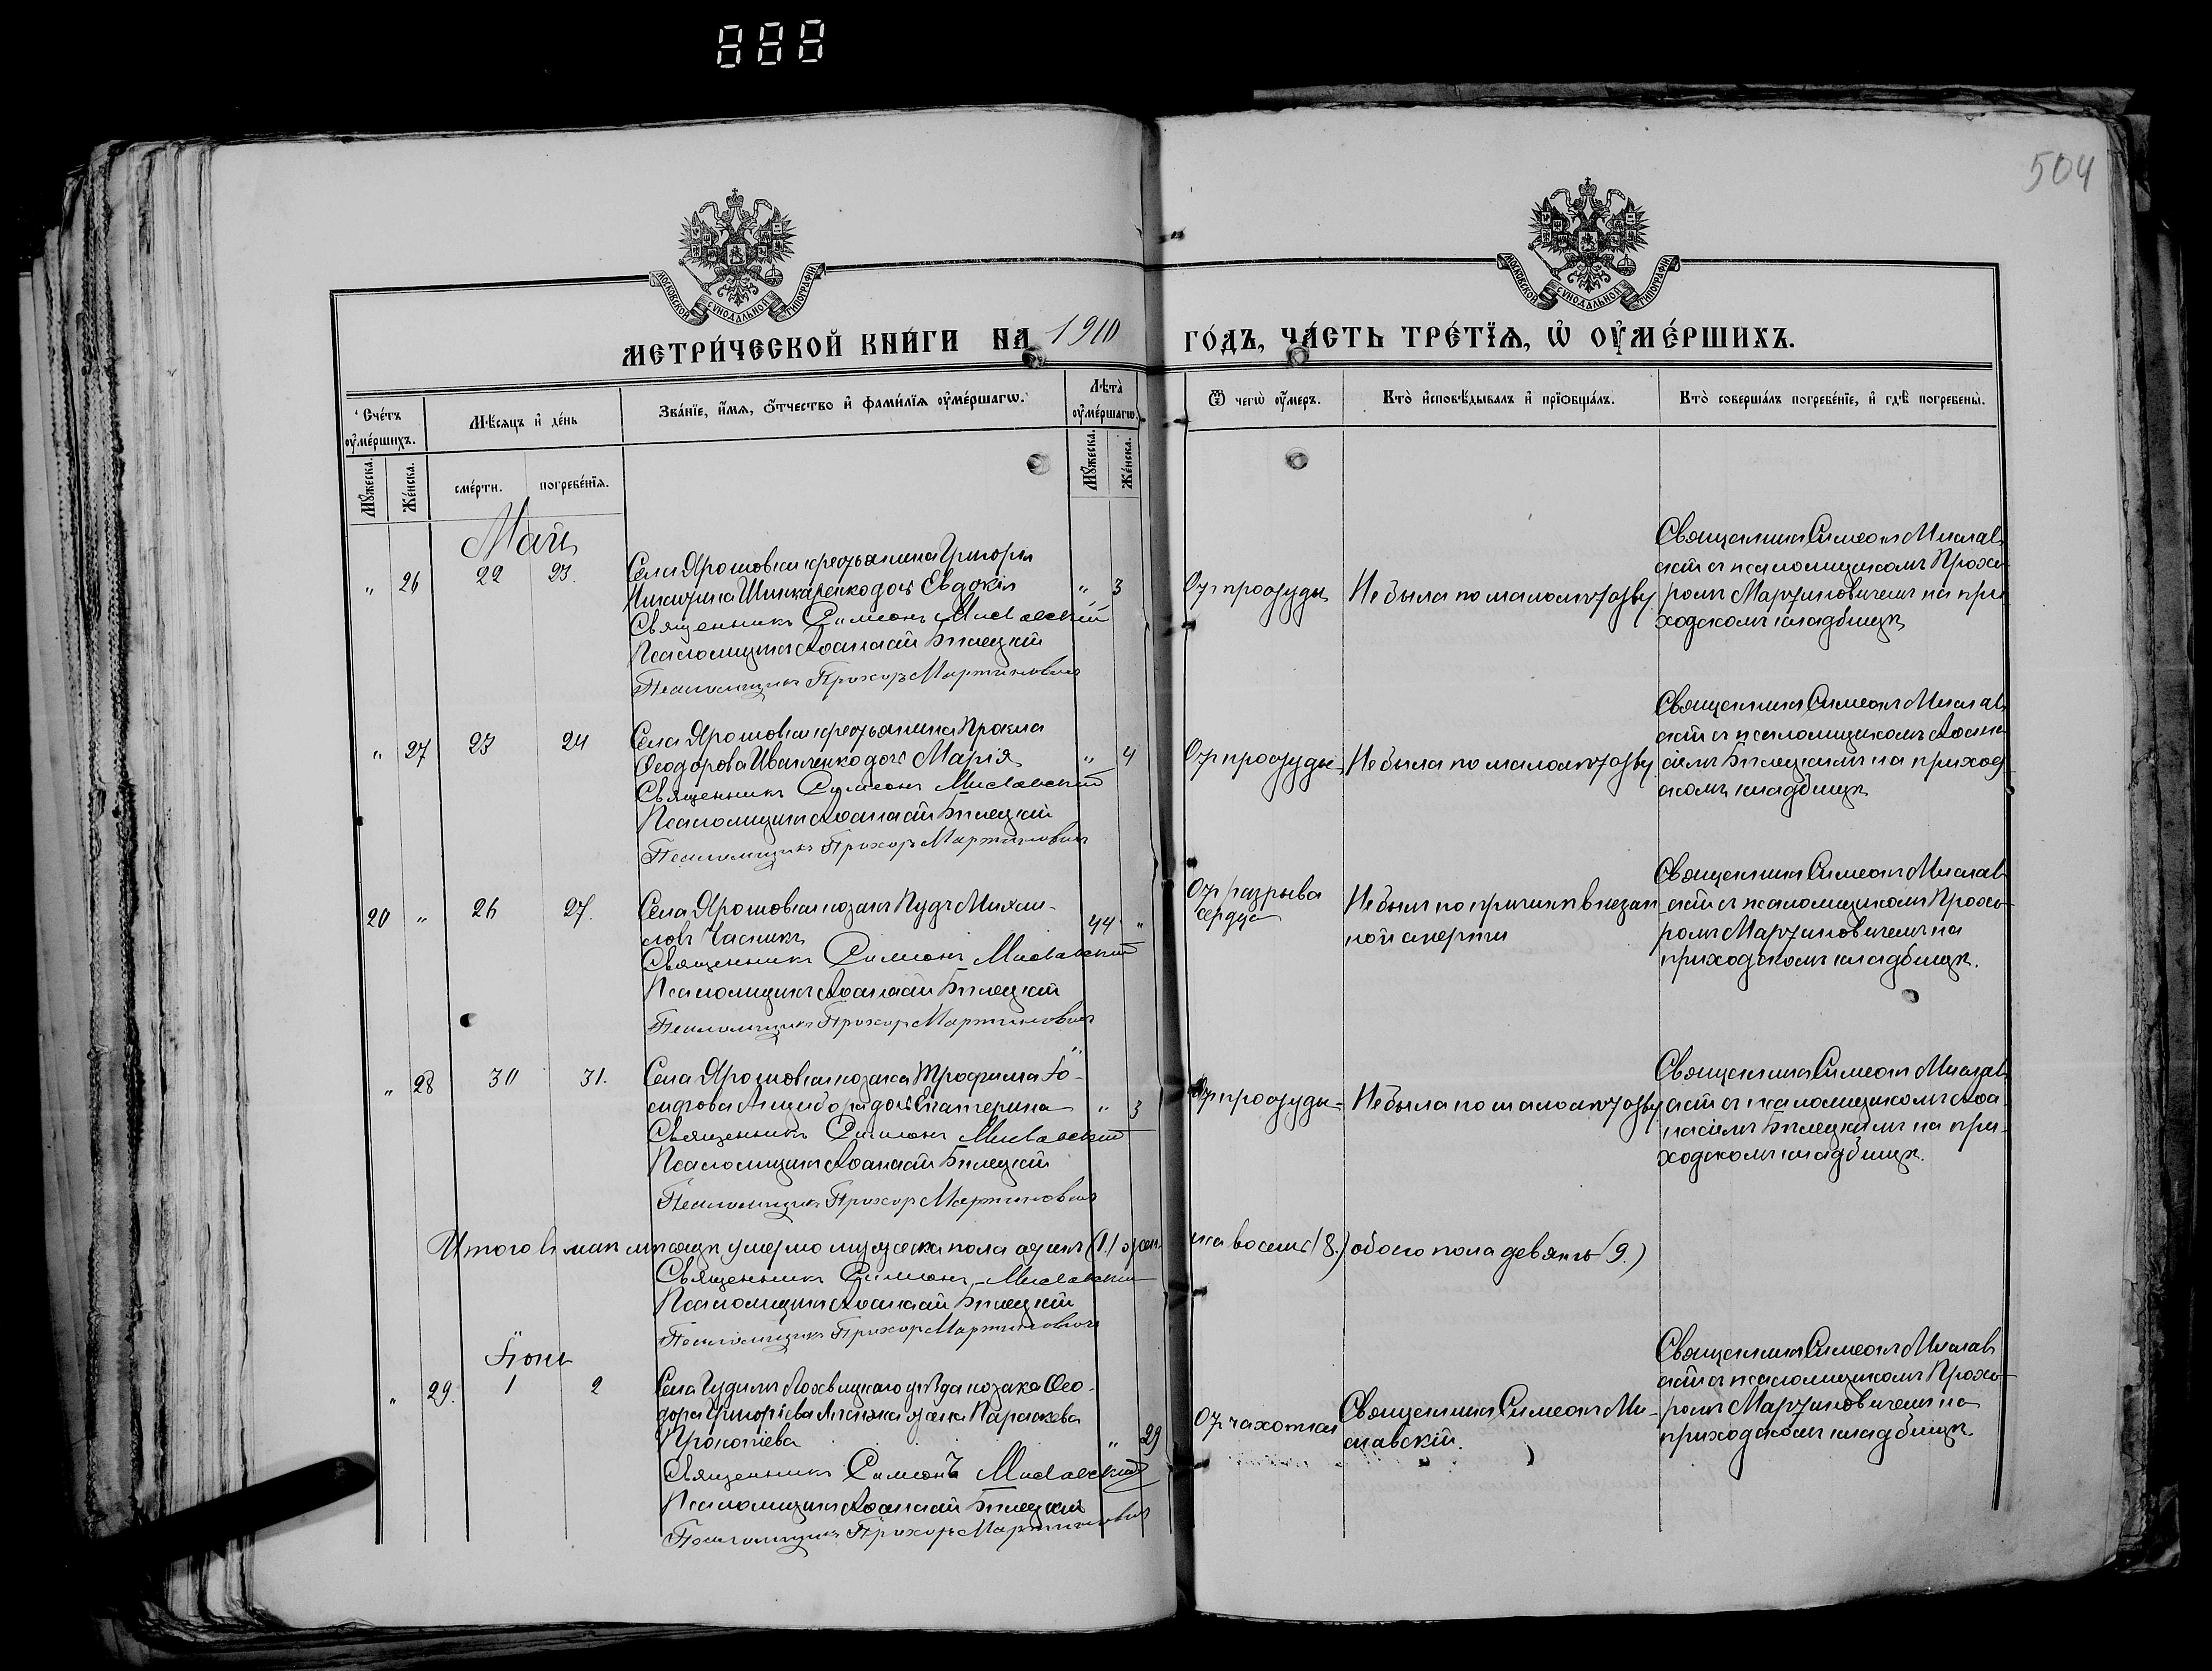 504
МОСКОВСКОЙ СѴНОДАЛЬНОЙ ТИПОГРАФІИ
МОСКОВСКОЙ СѴНОДАЛЬНОЙ ТИПОГРАФІИ
МЕТРИ́ЧЕСКОЙ КНИ́ГИ НА 1910 ГО́ДЪ, ЧА́СТЬ ТРЕ́ТЇѦ, Ѡ ОУМЕ́РШИХЪ.
Сче́тъ оуме́ршихъ.
Мѣсяцъ и де́нь
Зва́нїе, и́мѧ, о́тчество и фами́лїѧ оуме́ршагѡ.
Лѣта̀ оуме́ршагѡ.
Ѿ чегѡ̀ оу́меръ.
Кто̀ исповѣ́дывалъ и прїѡбща́лъ.
Кто̀ соверша́лъ погребе́нїе, и гдѣ̀ погребены̀.
Мꙋ́жеска.
Же́нска.
сме́рти.
погребе́нїѧ.
Мꙋ́жеска.
Же́нска.
Май
" 26 22 23.
Села Ярошовки крестьянина Григорія
Никитина Шинкаренко дочь Евдокія
" 3
Священникъ Симеонъ Миславскій
Псаломщикъ Аѳанасій Билецкій
Псаломщикъ Прохоръ Мартиновичъ
Отъ простуды
Не была по малолѣтству
Священникъ Симеонъ Миславскій
съ псаломщикомъ Прохо-
ромъ Мартиновичемъ на при
ходскомъ кладбищѣ
" 27 23 24
Села Ярошовки крестьянина Прокла
Ѳеодорова Иванченко дочь Марія
" 4
Священникъ Симеонъ Миславскій
Псаломщикъ Аѳанасій Билецкій
Псаломщикъ Прохоръ Мартиновичъ
Отъ простуды
Не была по малолѣтству.
Священникъ Симеонъ Миславскій
съ псаломщикомъ Аѳана
сіемъ Билецкимъ на приход
скомъ кладбищѣ
20 " 26 27.
Села Ярошовки козакъ Пудъ Михаи-
ловъ Часникъ
44 "
Священникъ Симеонъ Миславскій
Псаломщикъ Аѳанасій Билецкій
Псаломщикъ Прохоръ Мартиновичъ
Отъ разрыва
сердца
Не былъ по причинѣ внезап
ной смерти
Священникъ Симеонъ Миславскій
съ псаломщикомъ Прохо-
ромъ Мартиновичемъ на
приходскомъ кладбищѣ.
" 28 30 31.
Села Ярошовки козака Трофима Іо-
сифова дочь Екатерина
" 3
Священникъ Симеонъ Миславскій
Псаломщикъ Аѳанасій Билецкій
Псаломщикъ Прохоръ Мартиновичъ
Отъ простуды
Не была по малолѣтству
Священникъ Симеонъ Миславскій
съ псаломщикомъ Аѳа
насіемъ Билецкимъ на при-
ходскомъ кладбищѣ.
Итого въ маѣ мѣсяцѣ умерло мужеска пола одинъ (1.) жен-
ска восемь (8.) обоего пола девять (9.)
Священникъ Симеонъ Миславскій
Псаломщикъ Аѳанасій Билецкій
Псаломщикъ Прохоръ Мартиновичъ
Іюнь
" 29. 1 2
Села Лохвицкаго уѣзда козака Ѳео-
дора Григоріева жена Параскева
Прокопіева
" 29
Священникъ Симеонъ Миславскій
Псаломщикъ Аѳанасій Билецкій
Псаломщикъ Прохоръ Мартиновичъ
Отъ чахотки
Священникъ Симеонъ Ми-
славскій.
Священникъ Симеонъ Миславскій
съ псаломщикомъ Прохо-
ромъ Мартиновичемъ на
приходскомъ кладбищѣ.